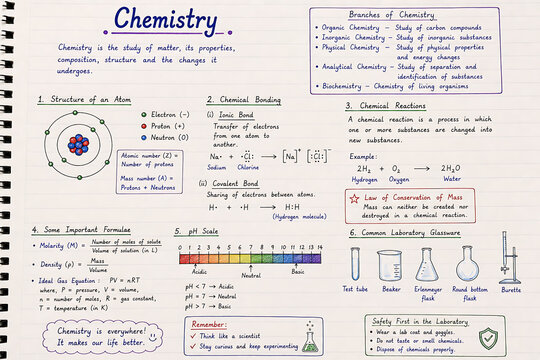 Chemistry
Chemistry is the study of matter, its properties,
composition, structure and the changes it
undergoes.
Branches of Chemistry
• Organic Chemistry – Study of carbon compounds
• Inorganic Chemistry – Study of inorganic substances
• Physical Chemistry – Study of physical properties
and energy changes
• Analytical Chemistry – Study of separation and
identification of substances
• Biochemistry – Chemistry of living organisms
1. Structure of an Atom
Electron (−)
Proton (+)
Neutron (0)
Atomic number (Z) =
Number of protons
Mass number (A) =
Protons + Neutrons
2. Chemical Bonding
(i) Ionic Bond
Transfer of electrons
from one atom to
another.
Na• + •Cl: → [Na]⁺ [:Cl:]⁻
Sodium Chlorine
(ii) Covalent Bond
Sharing of electrons between atoms.
H• + •H → H:H
(Hydrogen molecule)
3. Chemical Reactions
A chemical reaction is a process in which
one or more substances are changed into
new substances.
Example:
2H₂ + O₂ → 2H₂O
Hydrogen Oxygen Water
Law of Conservation of Mass
Mass can neither be created nor
destroyed in a chemical reaction.
4. Some Important Formulae
• Molarity (M) = Number of moles of solute
Volume of solution (in L)
• Density (ρ) = Mass
Volume
• Ideal Gas Equation : PV = nRT
where, P = pressure, V = volume,
n = number of moles, R = gas constant,
T = temperature (in K)
Chemistry is everywhere!
It makes our life better.
5. pH Scale
0 1 2 3 4 5 6 7 8 9 10 11 12 13 14
Acidic Neutral Basic
pH < 7 → Acidic
pH = 7 → Neutral
pH > 7 → Basic
Remember:
✓ Think like a scientist
✓ Stay curious and keep experimenting
6. Common Laboratory Glassware
Test tube Beaker Erlenmeyer flask Round bottom flask Burette
Safety First in the Laboratory
• Wear a lab coat and goggles.
• Do not taste or smell chemicals.
• Dispose of chemicals properly.